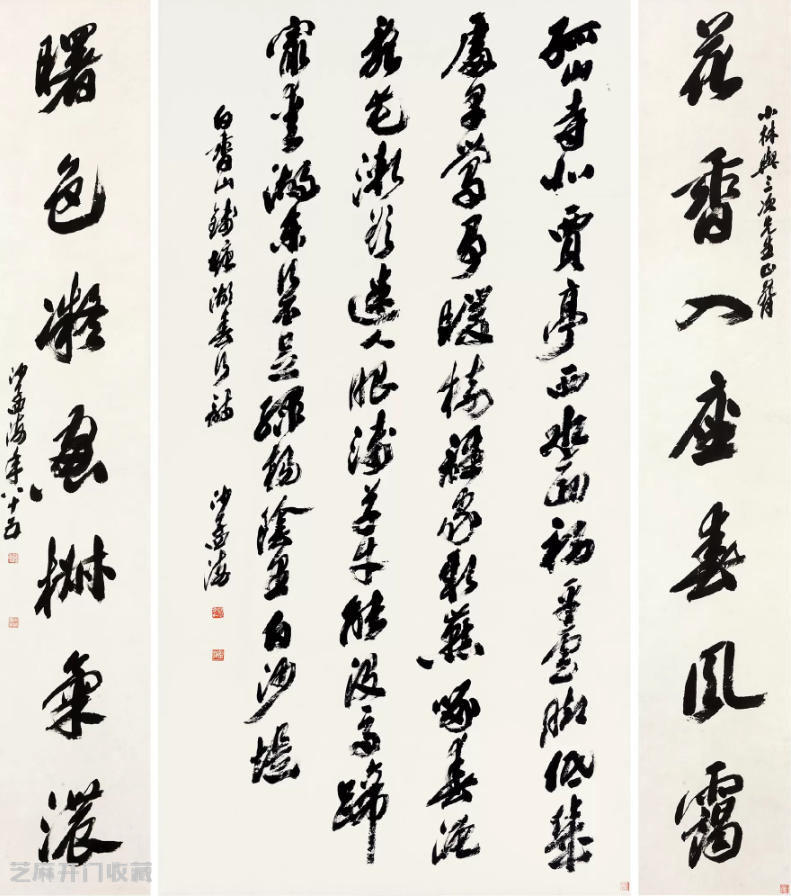 花香入座春風靄
小林與三次先生正
孤山寺北賈亭西水面初平雲腳低幾
處早鶯爭暖樹誰家新燕啄春泥
亂花漸欲迷人眼淺草才能沒馬蹄
最愛湖東行不足綠楊陰里白沙堤
白香山錢塘湖春行詩 沙孟海
曙色凝窗氣濃
沙孟海年八十五
芝麻开门收藏